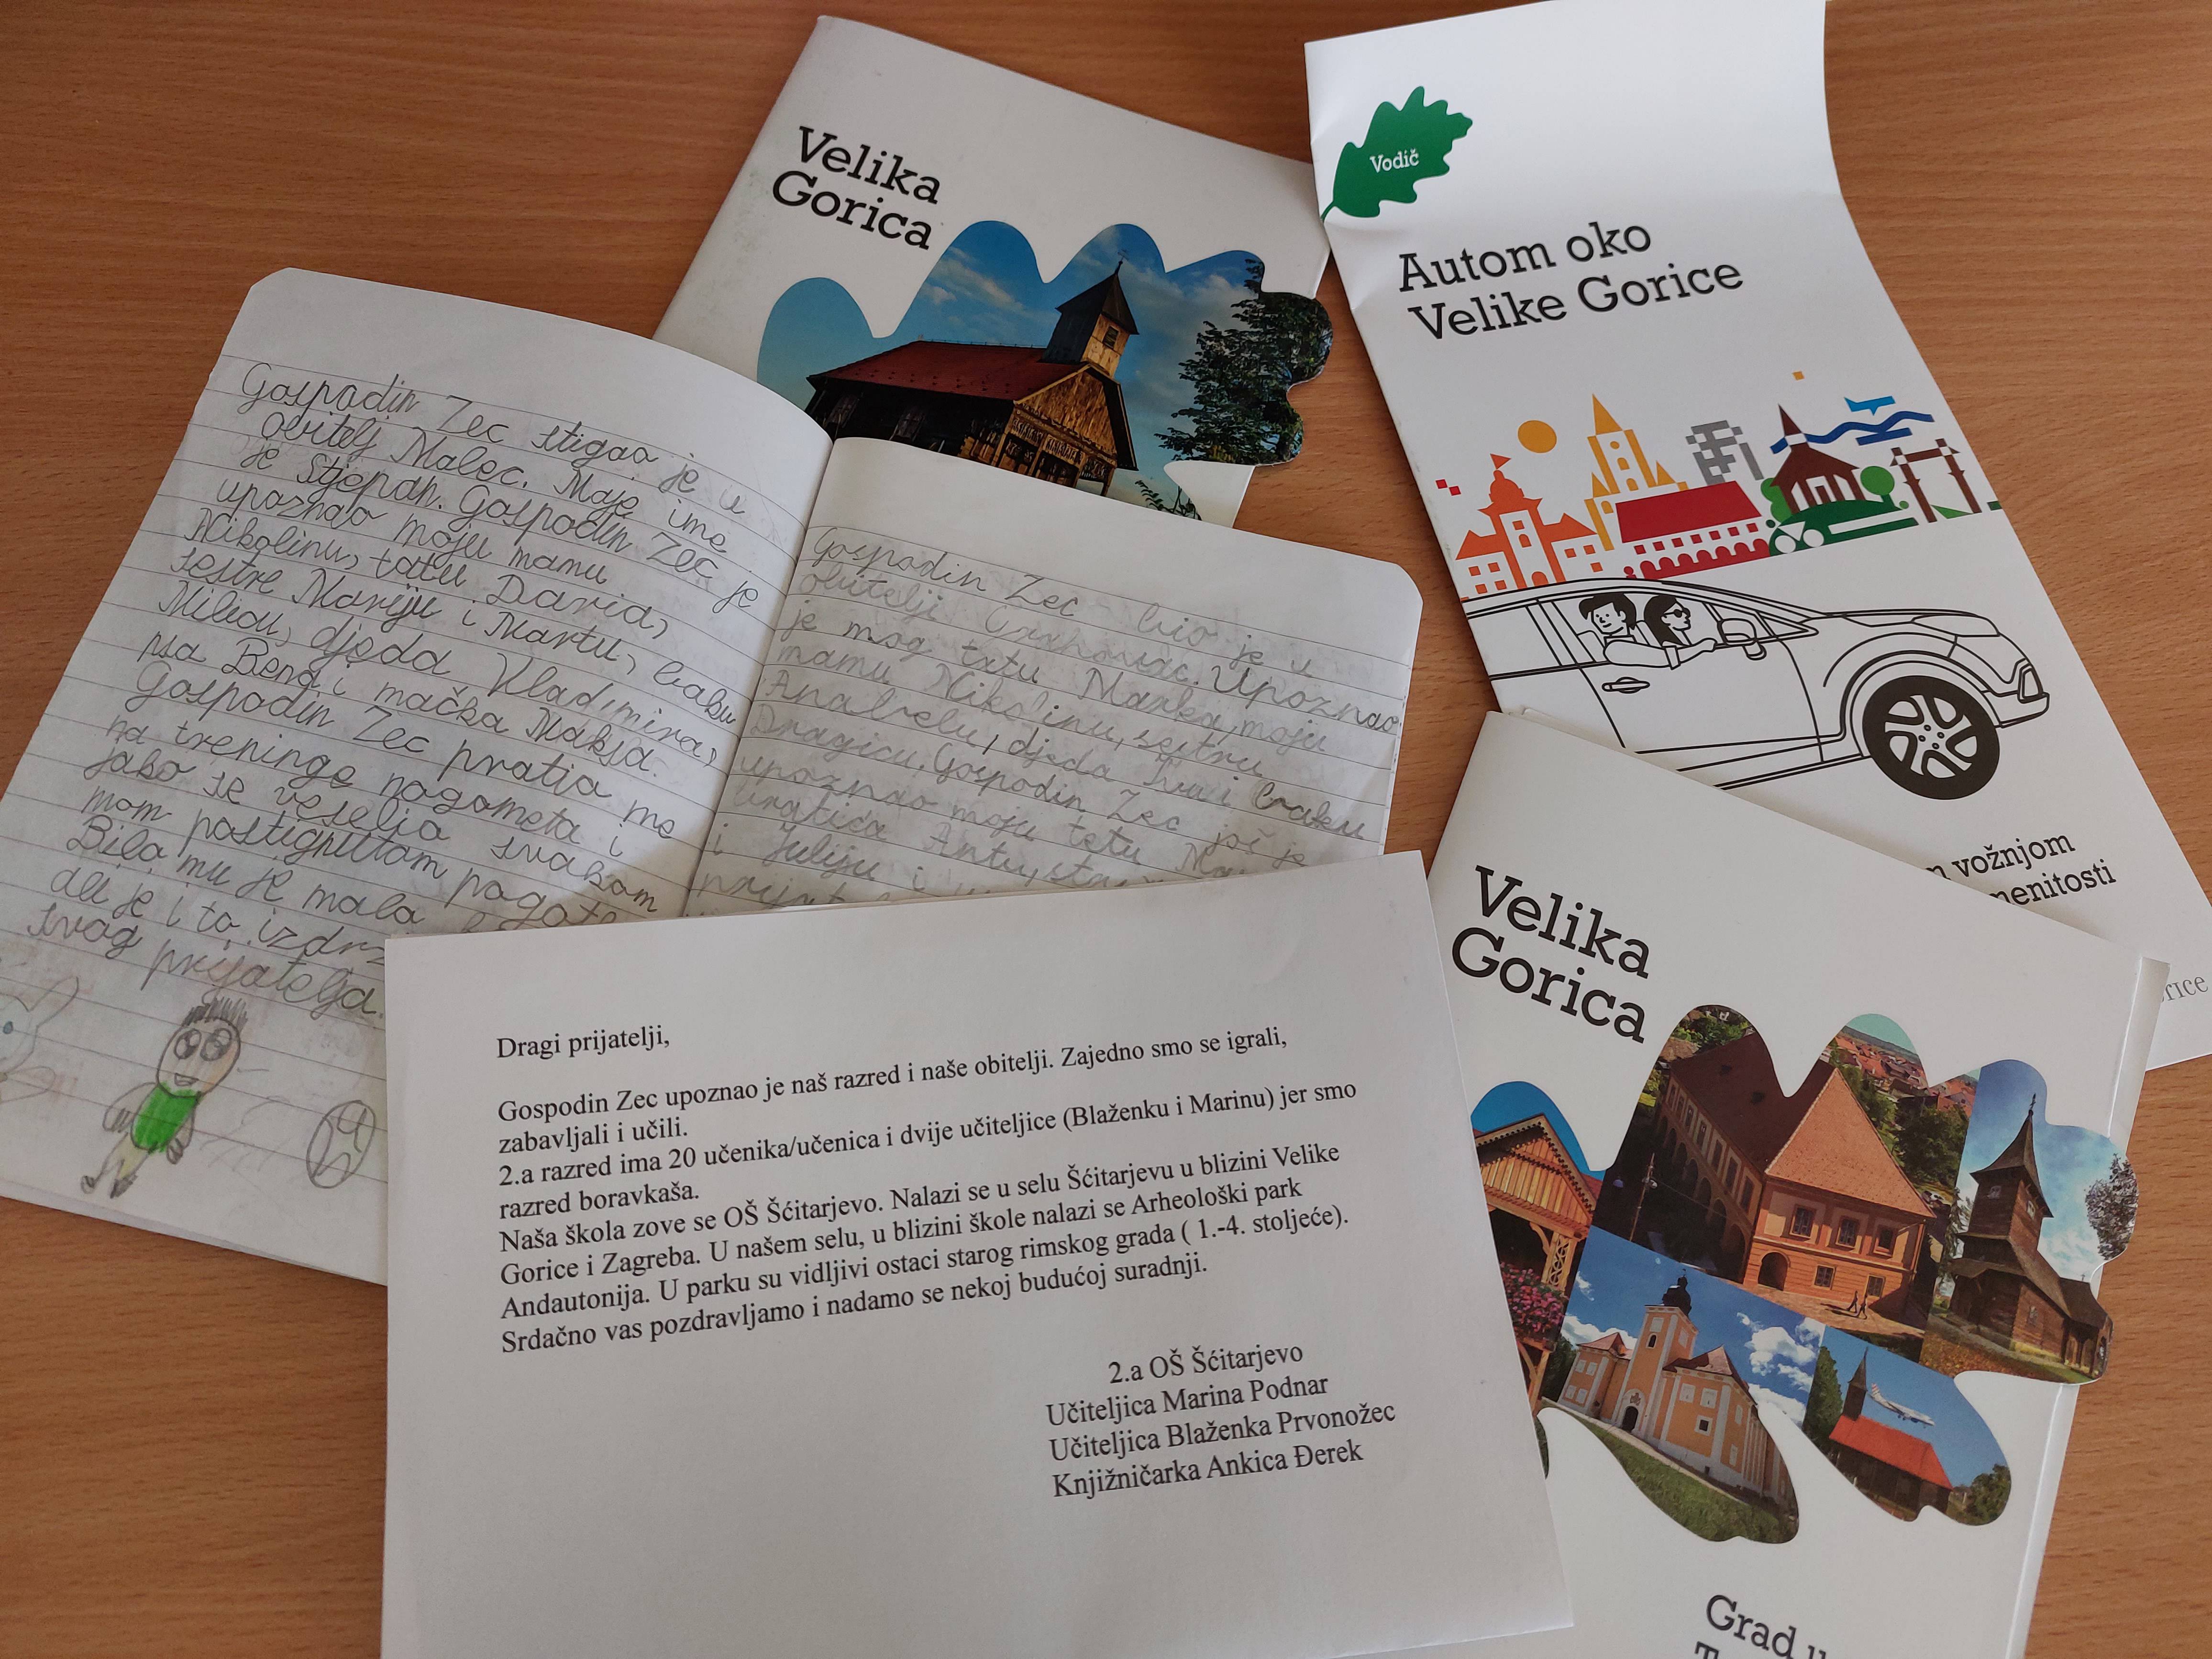 Velika
Gorica
Vodič
Autom oko
Velike Gorice
vožnjom
menitosti
Gospodin Zec stigao je u
obitelj Malec. Moje ime
je Stjepan. Gospodin Zec je
upoznao moju mamu
Nikolinu, tatu Davida,
sestre Mariju i Martu, baku
Milkou, djeda Vladimira,
psa Bena i mačka Maksa.
Gospodin Zec pratio me
na treninge nogometa i
jako se veselio svakom
mom postignutom
Bila mu je mala
ali je i to
svog prijatelja.
Gospodin Zec bio je u
obitelji Upoznao
je mog tatu Marka, moju
mamu Nikolinu, sestru
Anabelu, djeda Ivu i baku
Dragicu. Gospodin Zec još je
upoznao moju tetu
bratića Antu,
i Juliju i
Dragi prijatelji,
Gospodin Zec upoznao je naš razred i naše obitelji. Zajedno smo se igrali,
zabavljali i učili.
2.a razred ima 20 učenika/učenica i dvije učiteljice (Blaženku i Marinu) jer smo
razred boravkaša.
Naša škola zove se OŠ Šćitarjevo. Nalazi se u selu Šćitarjevu u blizini Velike
Gorice i Zagreba. U našem selu, u blizini škole nalazi se Arheološki park
Andautonija. U parku su vidljivi ostaci starog rimskog grada ( 1.-4. stoljeće).
Srdačno vas pozdravljamo i nadamo se nekoj budućoj suradnji.
2.a OŠ Šćitarjevo
Učiteljica Marina Podnar
Učiteljica Blaženka Prvonožec
Knjižničarka Ankica Đerek
Velika
Gorica
Grad u